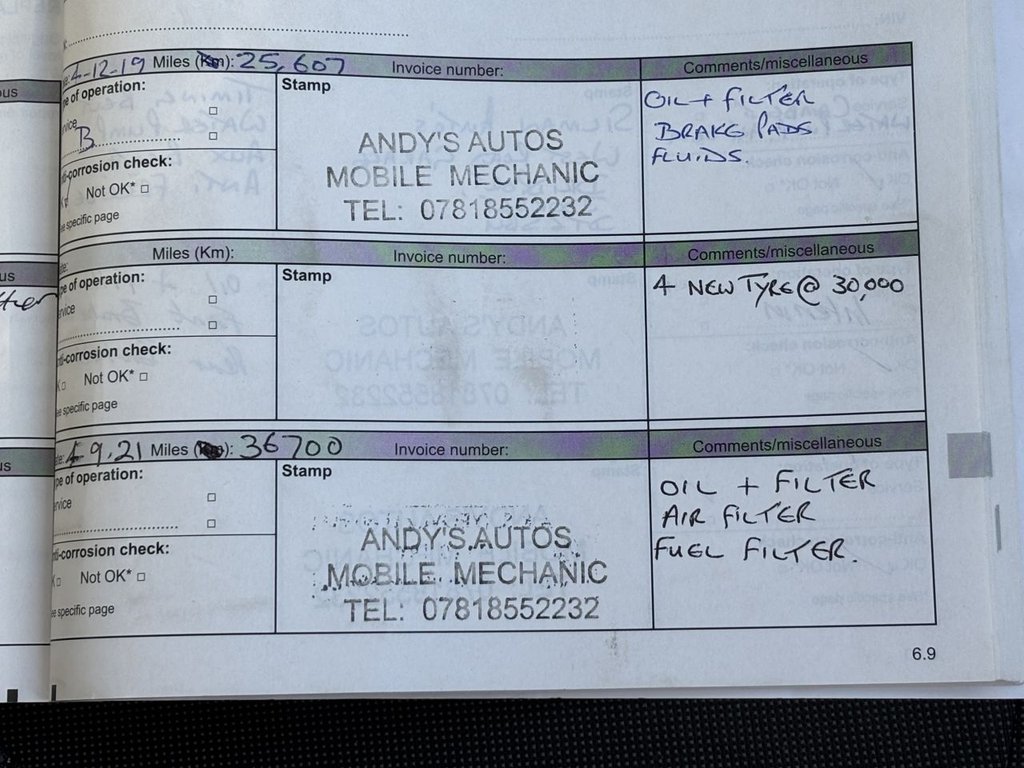 4-12-19 Miles (Km): 25,607 Invoice number: Comments/miscellaneous
of operation:
B
corrosion check:
Not OK* □
specific page
Stamp
ANDY'S AUTOS
MOBILE MECHANIC
TEL: 07818552232
OIL + FILTER
BRAKE PADS
FLUIDS.
Miles (Km): Invoice number: Comments/miscellaneous
of operation:
corrosion check:
Not OK* □
specific page
Stamp
4 NEW TYRE @ 30,000
9.21 Miles (Km): 36700 Invoice number: Comments/miscellaneous
of operation:
corrosion check:
Not OK* □
specific page
Stamp
ANDY'S AUTOS
MOBILE MECHANIC
TEL: 07818552232
OIL + FILTER
AIR FILTER
FUEL FILTER.
6.9